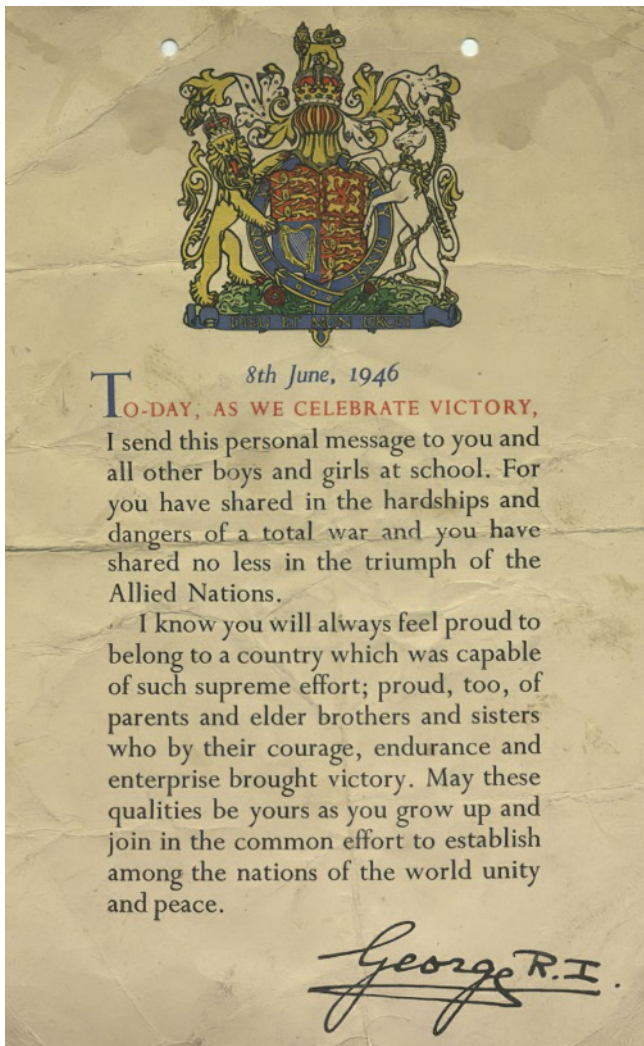 DIEU ET MON DROIT
8th June, 1946
TO-DAY, AS WE CELEBRATE VICTORY,
I send this personal message to you and
all other boys and girls at school. For
you have shared in the hardships and
dangers of a total war and you have
shared no less in the triumph of the
Allied Nations.
I know you will always feel proud to
belong to a country which was capable
of such supreme effort; proud, too, of
parents and elder brothers and sisters
who by their courage, endurance and
enterprise brought victory. May these
qualities be yours as you grow up and
join in the common effort to establish
among the nations of the world unity
and peace.
George R.I.